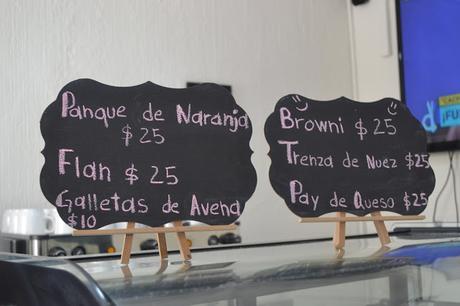 Panque de Naranja
$25
Flan $25
Galletas de Avena
$10
Browni $25
Trenza de Nuez $25
Pay de Queso $25